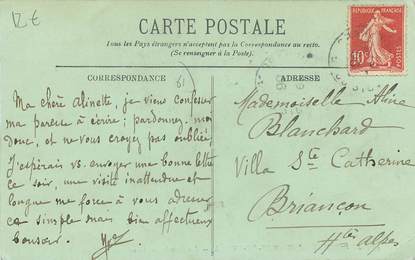 12 €
CARTE POSTALE
Tous les Pays étrangers n'acceptent pas la Correspondance au recto.
(Se renseigner à la Poste).
CORRESPONDANCE
61
Ma chère Alinette, je viens confesser
ma paresse à écrire; pardonnez-moi
donc, et ne vous croyez pas oubliée,
J'espérais vs. envoyer une bonne lettre
ce soir, une visite inattendue et
longue me force à vous adresser
ce simple mais bien affectueux
bonsoir.
ADRESSE
Mademoiselle Aline
Blanchard
Villa Ste Catherine
Briançon
Htes Alpes
REPUBLIQUE FRANÇAISE
10c